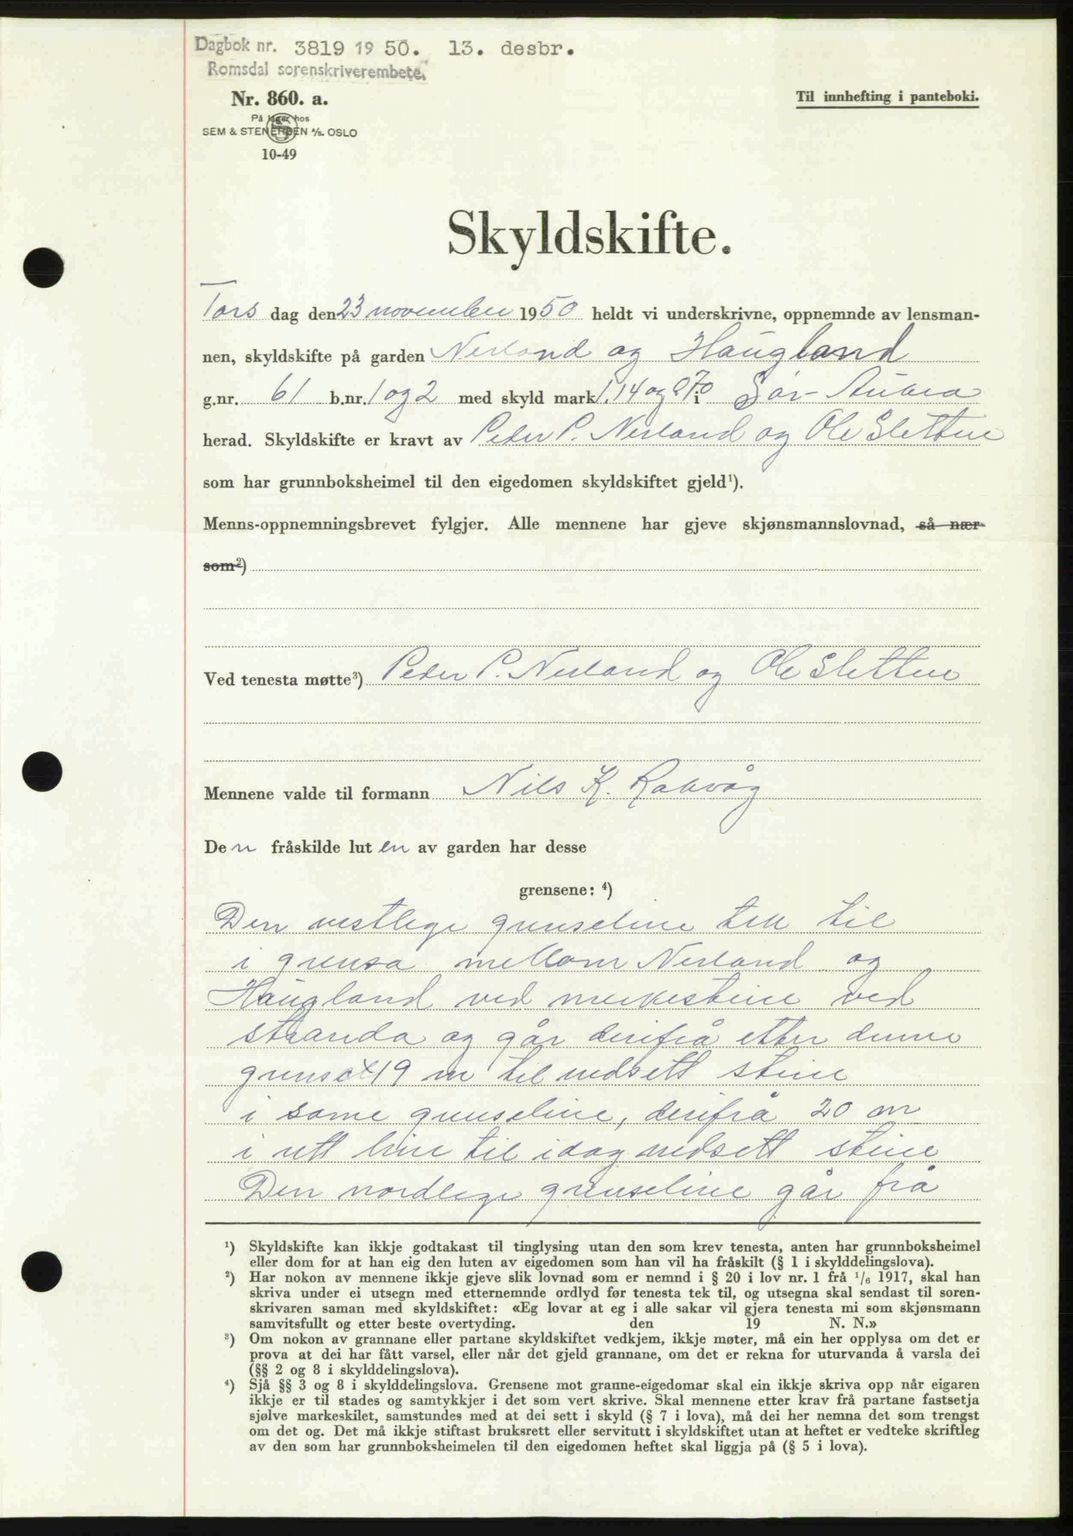 Dagbok nr. 3819 19 50. 13. desbr.
Romsdal sorenskriverembete.
Nr. 860. a.
Til innhefting i panteboki.
På lager hos
SEM & STENERSEN A/S. OSLO
10-49
Skyldskifte.
Tors dag den 23 november 1950 heldt vi underskrivne, oppnemnde av lensman-
nen, skyldskifte på garden Nerland og Haugland
g.nr. 61 b.nr. 1 og 2 med skyld mark 1.14 og 0.70 i Sør-Aukra
herad. Skyldskifte er kravt av Peder P. Nerland og Ole Slettene
som har grunnboksheimel til den eigedomen skyldskiftet gjeld¹).
Menns-oppnemningsbrevet fylgjer. Alle mennene har gjeve skjønsmannslovnad, så nær
som²)
Ved tenesta møtte³) Peder P. Nerland og Ole Slettene
Mennene valde til formann Nils K. Rakvåg
Den fråskilde luten av garden har desse
grensene: ⁴)
Den vestlige grenseline tek til
i grensa mellom Nerland og
Haugland ved merkesteine ved
stranda og går derifrå etter denne
grensa 19 m til nedsett steine
i same grenseline, derifrå 20 m
i rett line til idag nedsett steine
Den nordlege grenseline går frå
¹) Skyldskifte kan ikkje godtakast til tinglysing utan den som krev tenesta, anten har grunnboksheimel
eller dom for at han eig den luten av eigedomen som han vil ha fråskilt (§ 1 i skylddelingslova).
²) Har nokon av mennene ikkje gjeve slik lovnad som er nemnd i § 20 i lov nr. 1 frå ¹/₆ 1917, skal han
skriva under ei utsegn med etternemnde ordlyd før tenesta tek til, og utsegna skal sendast til soren-
skrivaren saman med skyldskiftet: «Eg lovar at eg i alle sakar vil gjera tenesta mi som skjønsmann
samvitsfullt og etter beste overtyding. den 19 N. N.»
³) Om nokon av grannane eller partane skyldskiftet vedkjem, ikkje møter, må ein her opplysa om det er
prova at dei har fått varsel, eller når det gjeld grannane, om det er rekna for uturvanda å varsla dei
(§§ 2 og 8 i skylddelingslova).
⁴) Sjå §§ 3 og 8 i skylddelingslova. Grensene mot granne-eigedomar skal ein ikkje skriva opp når eigaren
ikkje er til stades og samtykkjer i det som vert skrive. Skal mennene etter krav frå partane fastsetja
sjølve markeskilet, samstundes med at dei sett i skyld (§ 7 i lova), må dei her nemna det som trengst
om det og. Det må ikkje stiftast bruksrett eller servitutt i skyldskiftet utan at heftet er vedteke skriftleg
av den som har grunnboksheimelen til den eigedomen heftet skal liggja på (§ 5 i lova).